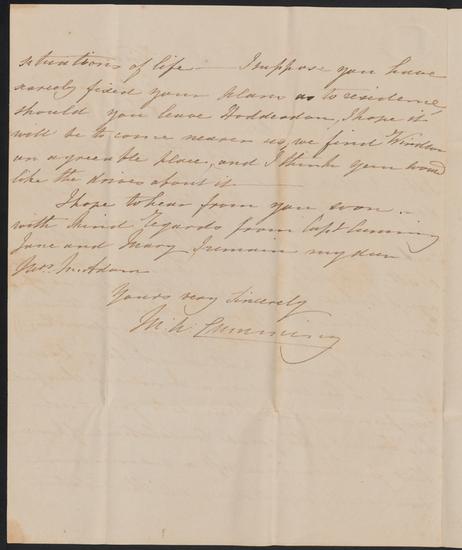 situations of life — I suppose you have
scarcely fixed your plans as to residence,
should you leave Hoddesdon, I hope it
will be to come nearer us, we find Windsor
an agreeable place, and I think you would
like the drives about it —
I hope to hear from you soon —
with kind regards from Capt Cumming
Jane and Mary, I remain my dear
Mrs McAdam
Yours very Sincerely
Cumming